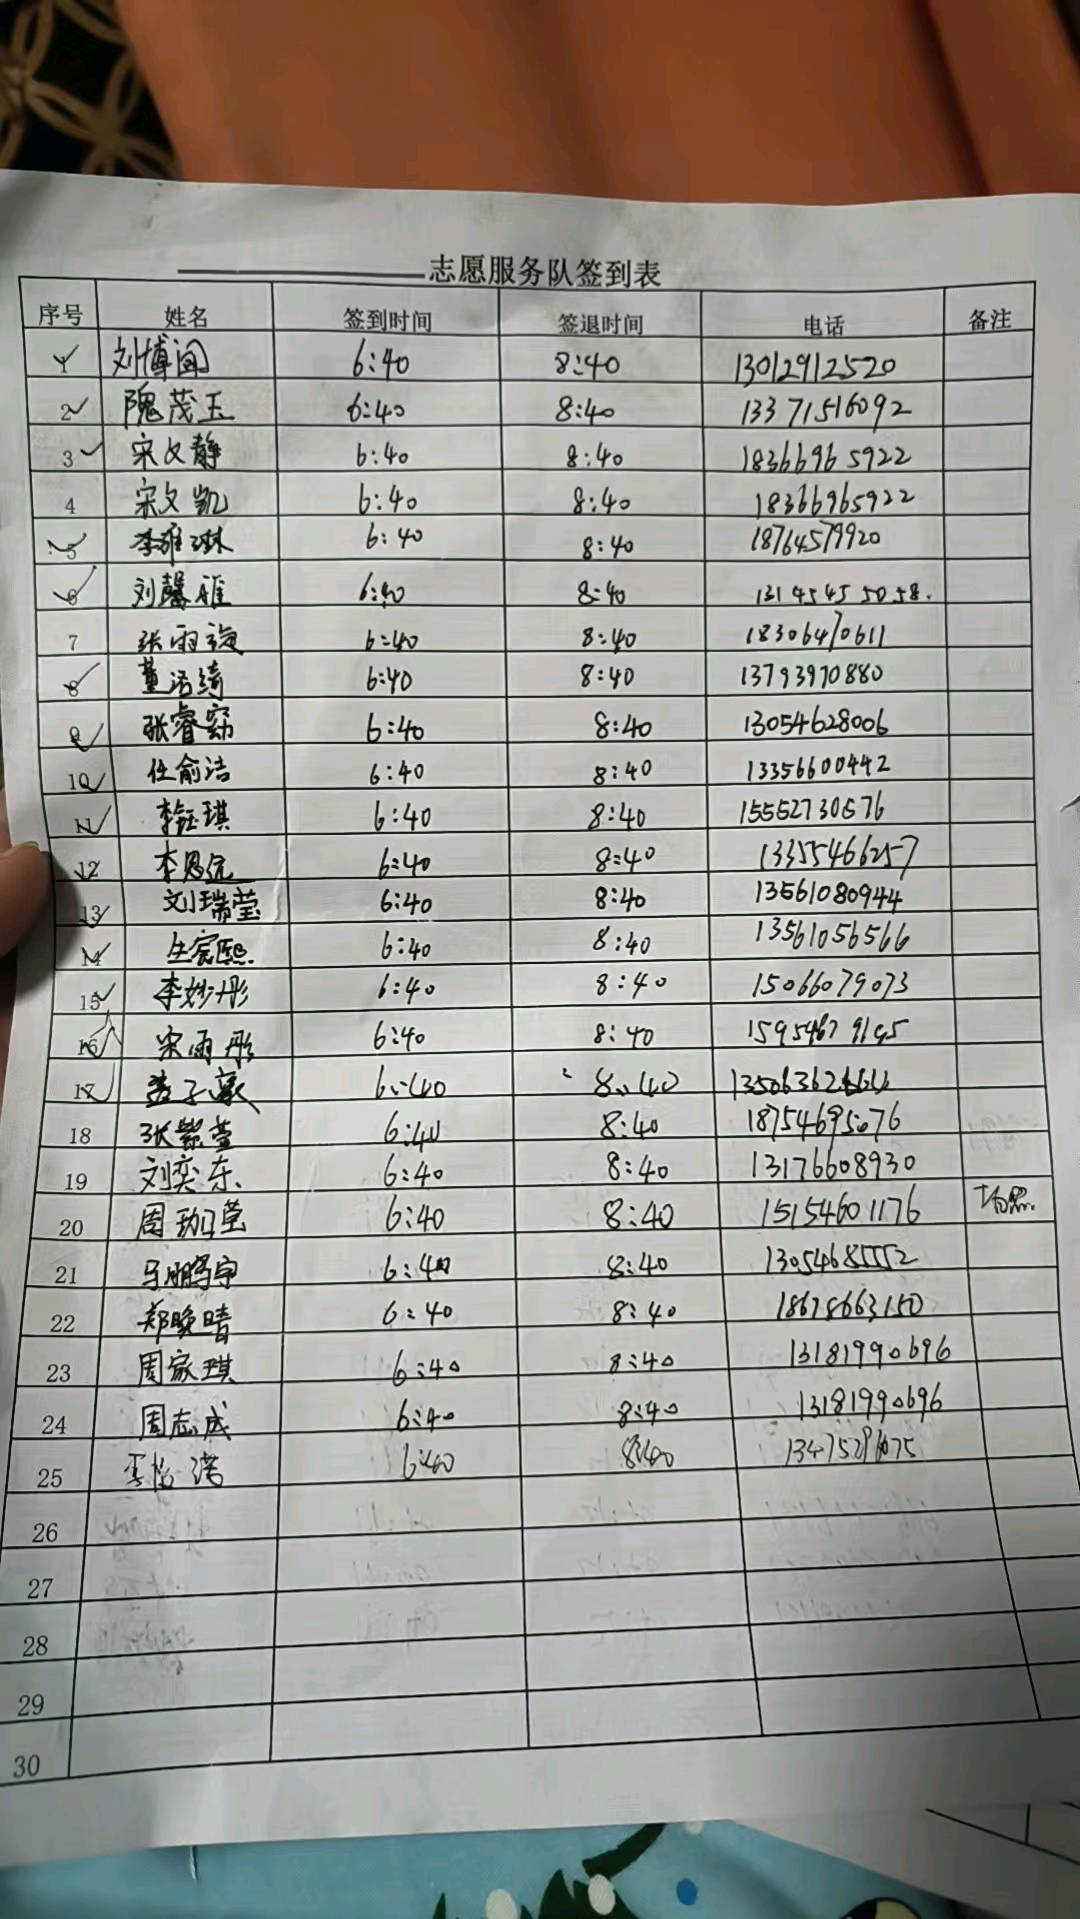 志愿服务队签到表
序号 姓名 签到时间 签退时间 电话 备注
1 刘博闻 6:40 8:40 13012912520
2 隗茂玉 6:40 8:40 13371516092
3 宋文静 6:40 8:40 18366965922
4 宋文凯 6:40 8:40 18366965922
5 李雅琳 6:40 8:40 18764579920
6 刘馨雅 6:40 8:40 13145455058.
7 张雨漩 6:40 8:40 18306470611
8 董洁绮 6:40 8:40 13793970880
9 张睿窈 6:40 8:40 13054628006
10 任俞洁 6:40 8:40 13356600442
11 李钰琪 6:40 8:40 15552730576
12 李思远 6:40 8:40 13355466257
13 刘瑞莹 6:40 8:40 13561080944
14 6:40 8:40 13561056566
15 李妙彤 6:40 8:40 15066079073
16 宋雨彤 6:40 8:40
17 6:40 8:40
18 张紫萱 6:40 8:40 18754695076
19 刘奕东 6:40 8:40 13176608930
20 周 6:40 8:40 15154601176
21 马鹏宇 6:40 8:40 13054685552
22 郑晚晴 6:40 8:40 18678663150
23 周家琪 6:40 8:40 13181990696
24 周志成 6:40 8:40 13181990696
25 李怡诺 6:40 8:40
26
27
28
29
30